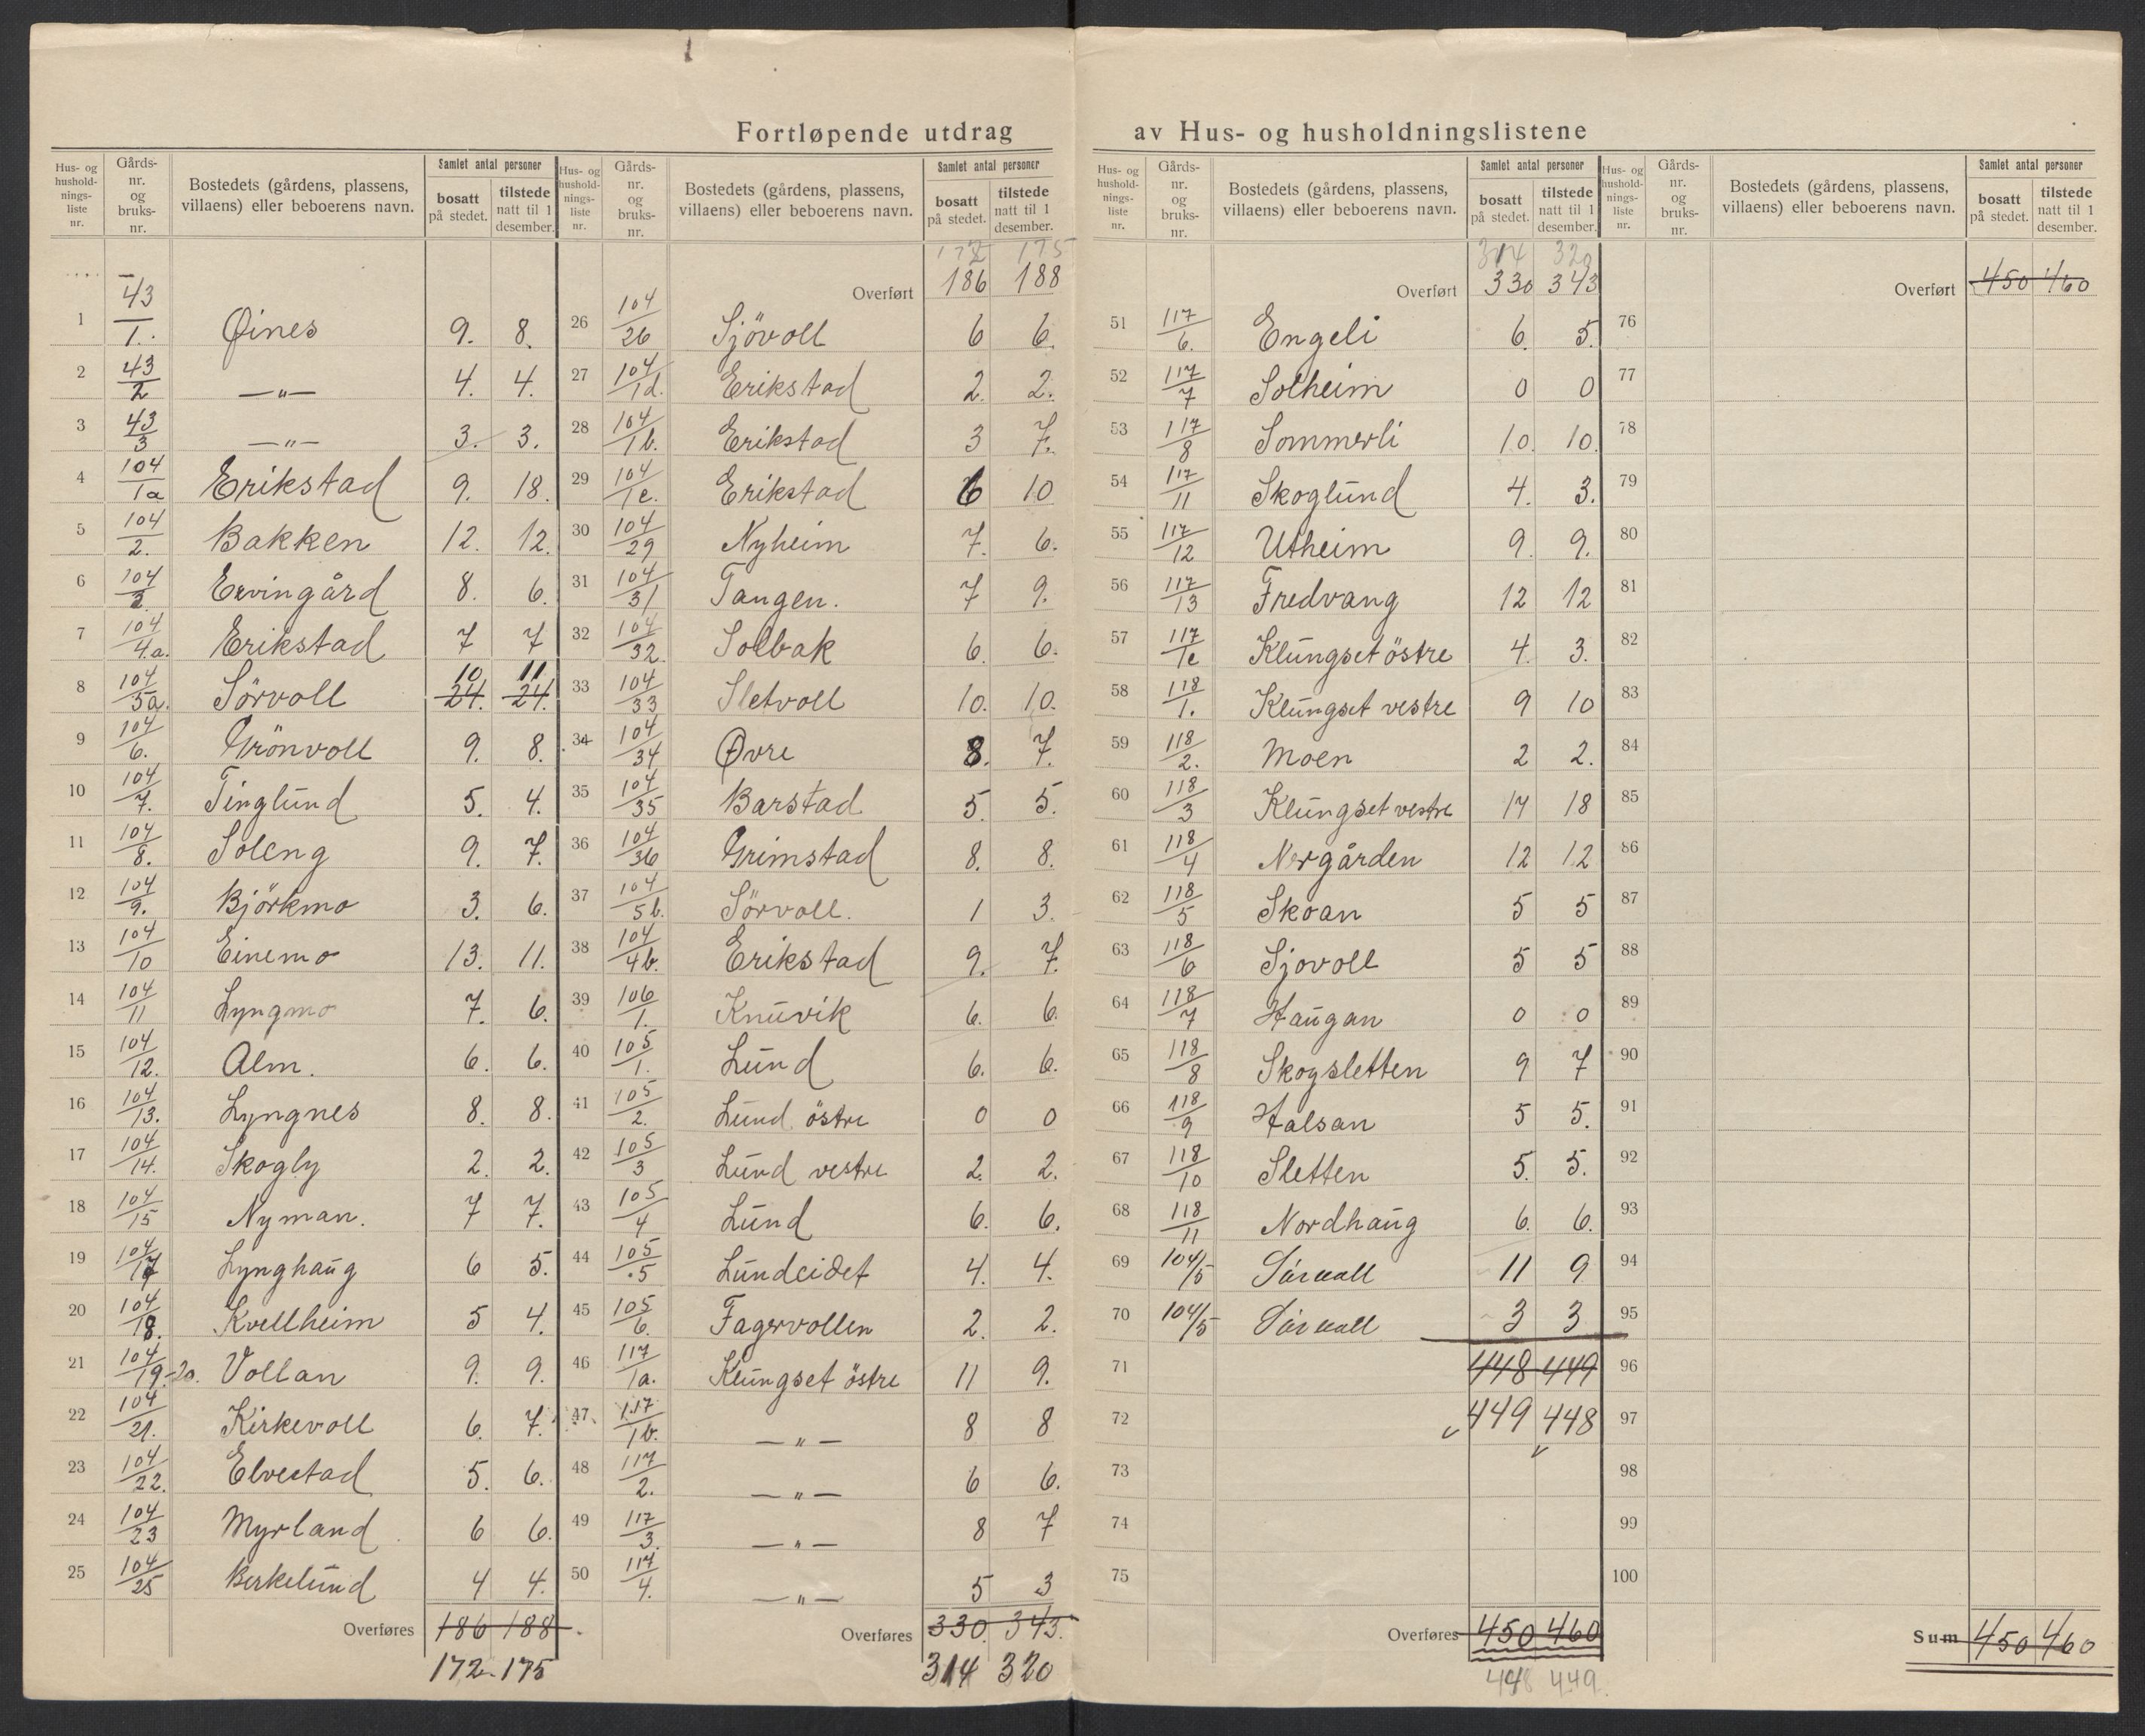 Fortløpende utdrag av Hus- og husholdningslistene
Hus- og hushold- nings- liste nr. | Gårds- nr. og bruks- nr. | Bostedets (gårdens, plassens, villaens) eller beboerens navn. | Samlet antal personer: bosatt på stedet. | tilstede natt til 1 desember.
43
1 | 1. | Øines | 9. | 8.
2 | 43/2 | —"— | 4. | 4.
3 | 43/3 | —"— | 3. | 3.
4 | 104/1a | Erikstad | 9. | 18.
5 | 104/2. | Bakken | 12. | 12.
6 | 104/3 | Ervingård | 8. | 6.
7 | 104/4.a. | Erikstad | 7 | 7
8 | 104/5a. | Sörvoll | 10 24. | 11 24.
9 | 104/6. | Grönvoll | 9. | 8.
10 | 104/7. | Tinglund | 5. | 4.
11 | 104/8. | Soleng | 9. | 7.
12 | 104/9. | Björkmo | 3. | 6.
13 | 104/10 | Einemo | 13. | 11.
14 | 104/11 | Lyngmo | 7. | 6.
15 | 104/12. | Alm. | 6. | 6.
16 | 104/13. | Lyngnes | 8. | 8.
17 | 104/14. | Skogly | 2. | 2.
18 | 104/15 | Nyman. | 7 | 7.
19 | 104/17 | Lynghaug | 6 | 5.
20 | 104/18. | Kvellheim | 5 | 4.
21 | 104/19-20. | Vollan | 9. | 9.
22 | 104/21. | Kirkevoll | 6. | 7.
23 | 104/22. | Elvestad | 5. | 6.
24 | 104/23 | Myrland | 6 | 6.
25 | 104/25 | Berkelund | 4 | 4.
Overføres 186 188
172 - 175
Hus- og hushold- nings- liste nr. | Gårds- nr. og bruks- nr. | Bostedets (gårdens, plassens, villaens) eller beboerens navn. | Samlet antal personer: bosatt på stedet. | tilstede natt til 1 desember.
172 175
Overført 186 188
26 | 104/26 | Sjövoll | 6 | 6.
27 | 104/1d. | Erikstad | 2. | 2.
28 | 104/1b. | Erikstad | 3 | 7.
29 | 104/1c. | Erikstad | 6 | 10
30 | 104/29 | Nyheim | 7. | 6.
31 | 104/31 | Tangen. | 7 | 9.
32 | 104/32. | Solbak | 6. | 6.
33 | 104/33 | Sletvoll | 10. | 10.
34 | 104/34 | Øvre | 8. | 7.
35 | 104/35 | Barstad | 5. | 5.
36 | 104/36 | Grimstad | 8. | 8.
37 | 104/5b. | Sörvoll. | 1 | 3.
38 | 104/4b. | Erikstad | 9. | 7.
39 | 106/1. | Knuvik | 6. | 6.
40 | 105/1. | Lund | 6. | 6.
41 | 105/2. | Lund östre | 0 | 0
42 | 105/3 | Lund vestre | 2. | 2.
43 | 105/4 | Lund | 6. | 6.
44 | 105/5 | Lundeidet | 4. | 4.
45 | 105/6. | Fagervollen | 2. | 2.
46 | 117/1a. | Klungset östre | 11 | 9.
47 | 117/1b. | —"— | 8 | 8
48 | 117/2. | —"— | 6 | 6.
49 | 117/3. | —"— | 8 | 7
50 | 117/4. | —"— | 5 | 3
Overføres 330. 343.
314 320
Hus- og hushold- nings- liste nr. | Gårds- nr. og bruks- nr. | Bostedets (gårdens, plassens, villaens) eller beboerens navn. | Samlet antal personer: bosatt på stedet. | tilstede natt til 1 desember.
314 320
Overført 330 343
51 | 117/6. | Engeli | 6. | 5.
52 | 117/7 | Solheim | 0 | 0
53 | 117/8 | Sommerli | 10. | 10.
54 | 117/11 | Skoglund | 4. | 3.
55 | 117/12 | Utheim | 9. | 9.
56 | 117/13 | Fredvang | 12 | 12
57 | 117/1c | Klungset östre | 4. | 3.
58 | 118/1. | Klungset vestre | 9 | 10
59 | 118/2. | Moen | 2 | 2.
60 | 118/3 | Klungset vestre | 17 | 18
61 | 118/4 | Nergården | 12 | 12
62 | 118/5 | Skoan | 5 | 5
63 | 118/6 | Sjovoll | 5 | 5
64 | 118/7 | Haugan | 0 | 0
65 | 118/8 | Skogsletten | 9 | 7
66 | 118/9 | Halsan | 5 | 5.
67 | 118/10 | Sletten | 5. | 5.
68 | 118/11 | Nordhaug | 6. | 6.
69 | 104/5 | Sörvoll | 11 | 9
70 | 104/5 | Sörvoll | 3 | 3
71 | 448 | 449
72 | 449 | 448
73
74
75
Overføres 450 460
448 449.
Hus- og hushold- nings- liste nr. | Gårds- nr. og bruks- nr. | Bostedets (gårdens, plassens, villaens) eller beboerens navn. | Samlet antal personer: bosatt på stedet. | tilstede natt til 1 desember.
Overført 450 460
76
77
78
79
80
81
82
83
84
85
86
87
88
89
90
91
92
93
94
95
96
97
98
99
100
Sum 450 460